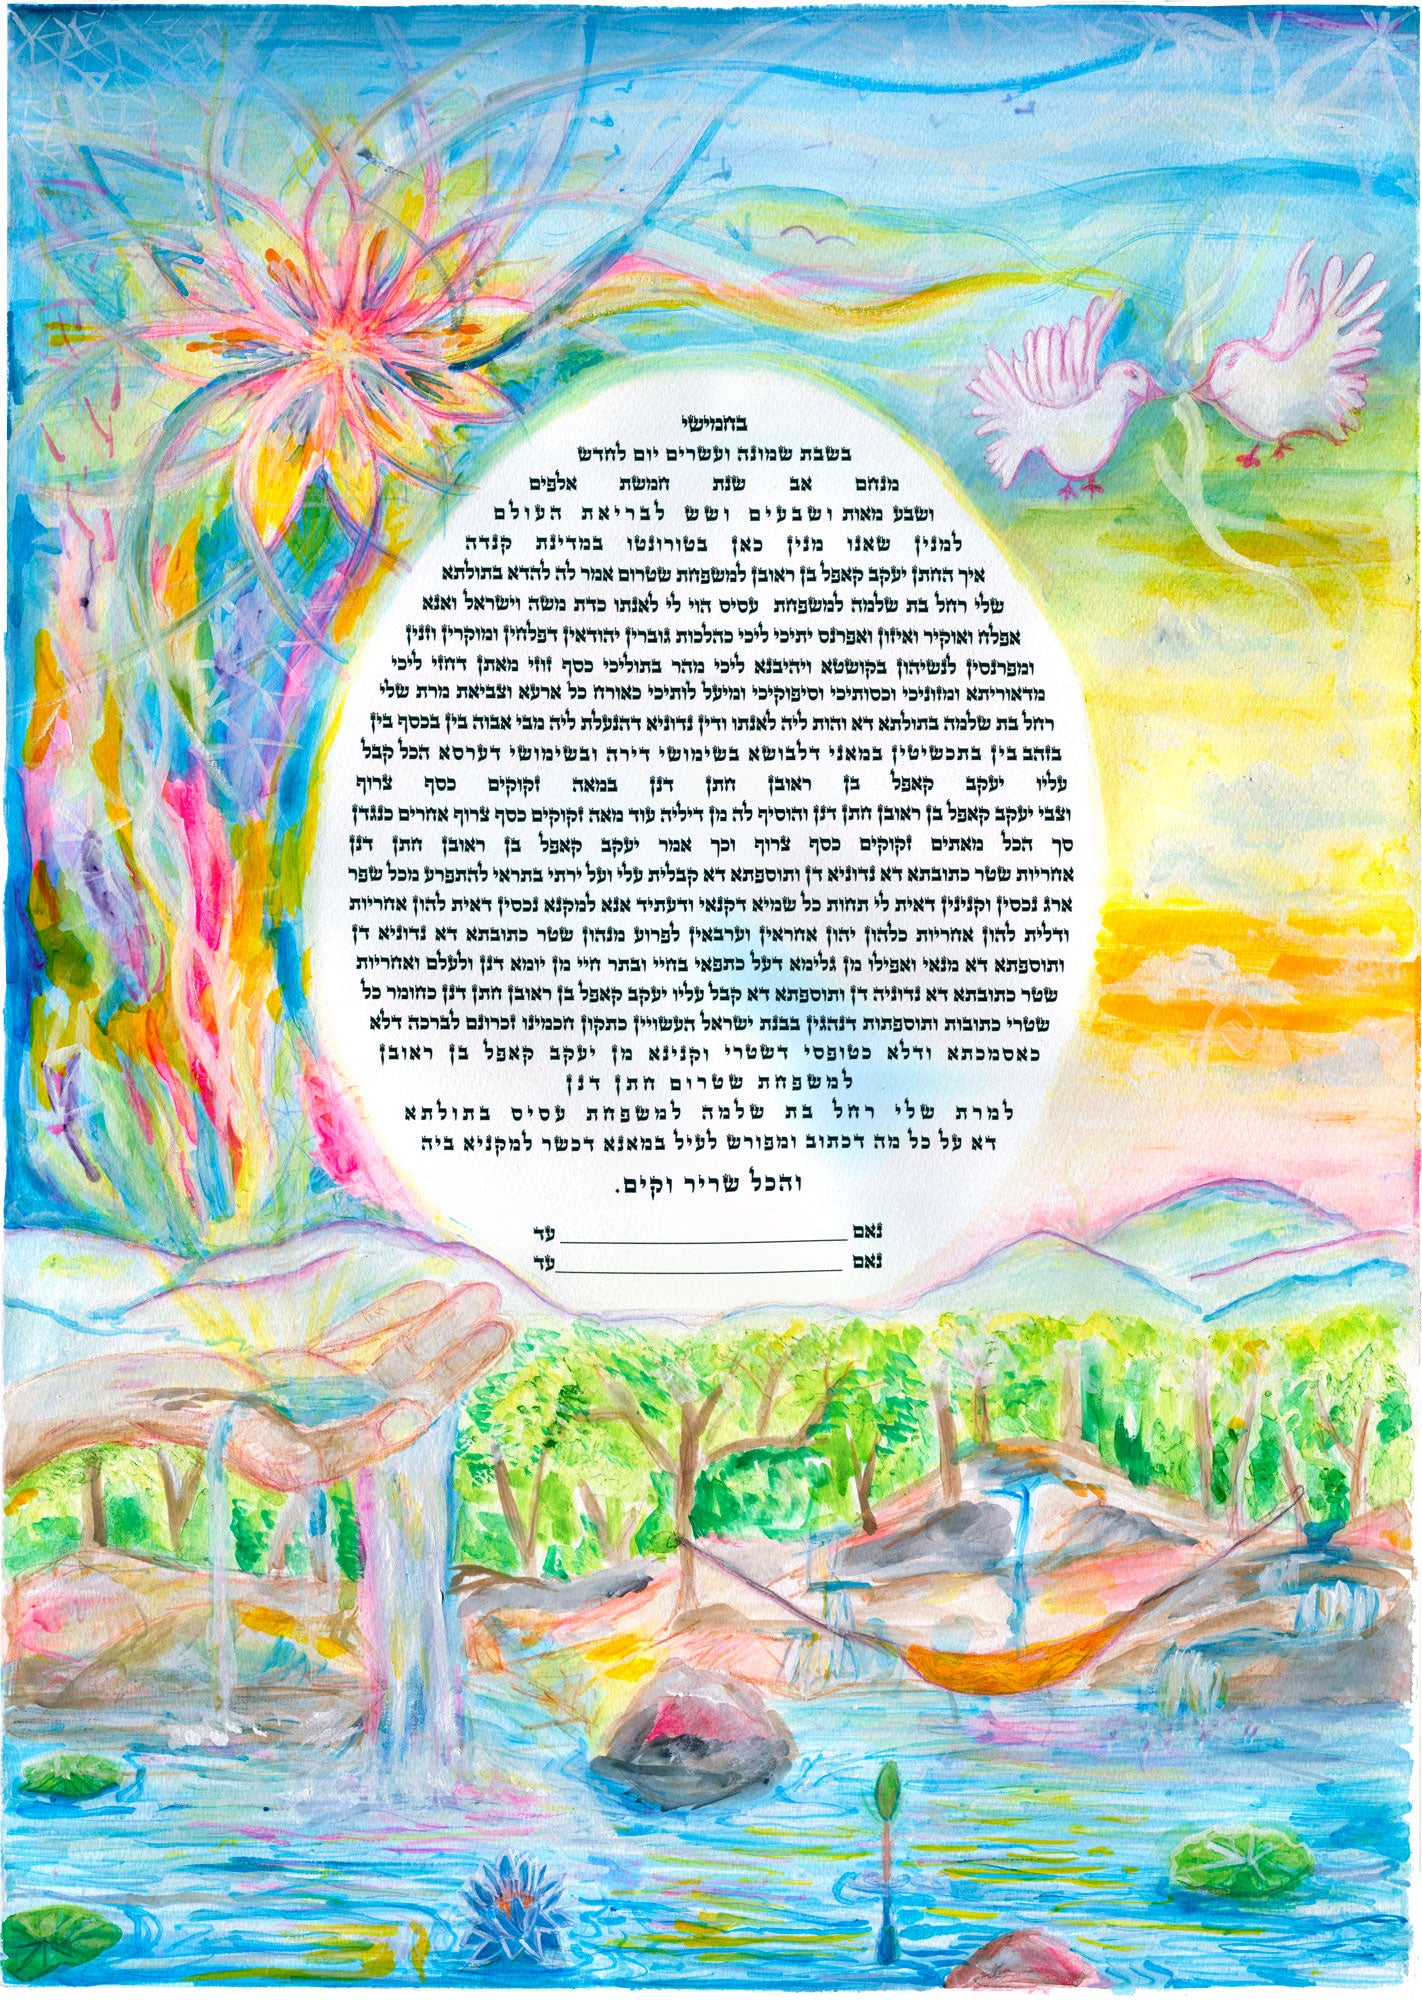 בחמישי
בשבת שמונה ועשרים יום לחדש
מנחם אב שנת חמשת אלפים
ושבע מאות ושבעים ושש לבריאת העולם
למנין שאנו מנין כאן בטורונטו במדינת קנדה
איך החתן יעקב קאפל בן ראובן למשפחת שטרום אמר לה להדא בתולתא
שלי רחל בת שלמה למשפחת עסיס הוי לי לאנתו כדת משה וישראל ואנא
אפלח ואוקיר ואיזון ואפרנס יתיכי ליכי כהלכות גוברין יהודאין דפלחין ומוקרין וזנין
ומפרנסין לנשיהון בקושטא ויהיבנא ליכי מהר בתוליכי כסף זוזי מאתן דחזי ליכי
מדאוריתא ומזוניכי וכסותיכי וסיפוקיכי ומיעל לותיכי כאורח כל ארעא וצביאת מרת שלי
רחל בת שלמה בתולתא דא והות ליה לאנתו ודין נדוניא דהנעלת ליה מבי אבוה בין בכסף בין
בזהב בין בתכשיטין במאני דלבושא בשימושי דירה ובשימושי דערסא הכל קבל
עליו יעקב קאפל בן ראובן חתן דנן במאה זקוקים כסף צרוף
וצבי יעקב קאפל בן ראובן חתן דנן והוסיף לה מן דיליה עוד מאה זקוקים כסף צרוף אחרים כנגדן
סך הכל מאתים זקוקים כסף צרוף וכך אמר יעקב קאפל בן ראובן חתן דנן
אחריות שטר כתובתא דא נדוניא דן ותוספתא דא קבלית עלי ועל ירתי בתראי להתפרע מכל שפר
ארג נכסין וקנינין דאית לי תחות כל שמיא דקנאי ודעתיד אנא למקנא נכסין דאית להון אחריות
ודלית להון אחריות כלהון יהון אחראין וערבאין לפרוע מנהון שטר כתובתא דא נדוניא דן
ותוספתא דא מנאי ואפילו מן גלימא דעל כתפאי בחיי ובתר חיי מן יומא דנן ולעלם ואחריות
שטר כתובתא דא נדוניה דן ותוספתא דא קבל עליו יעקב קאפל בן ראובן חתן דנן כחומר כל
שטרי כתובות ותוספתות דנהגין בבנת ישראל העשויין כתקון חכמינו זכרונם לברכה דלא
כאסמכתא ודלא כטופסי דשטרי וקנינא מן יעקב קאפל בן ראובן
למשפחת שטרום חתן דנן
למרת שלי רחל בת שלמה למשפחת עסיס בתולתא
דא על כל מה דכתוב ומפורש לעיל במאנא דכשר למקניא ביה
והכל שריר וקים.
נאם ____________________ עד
נאם ____________________ עד